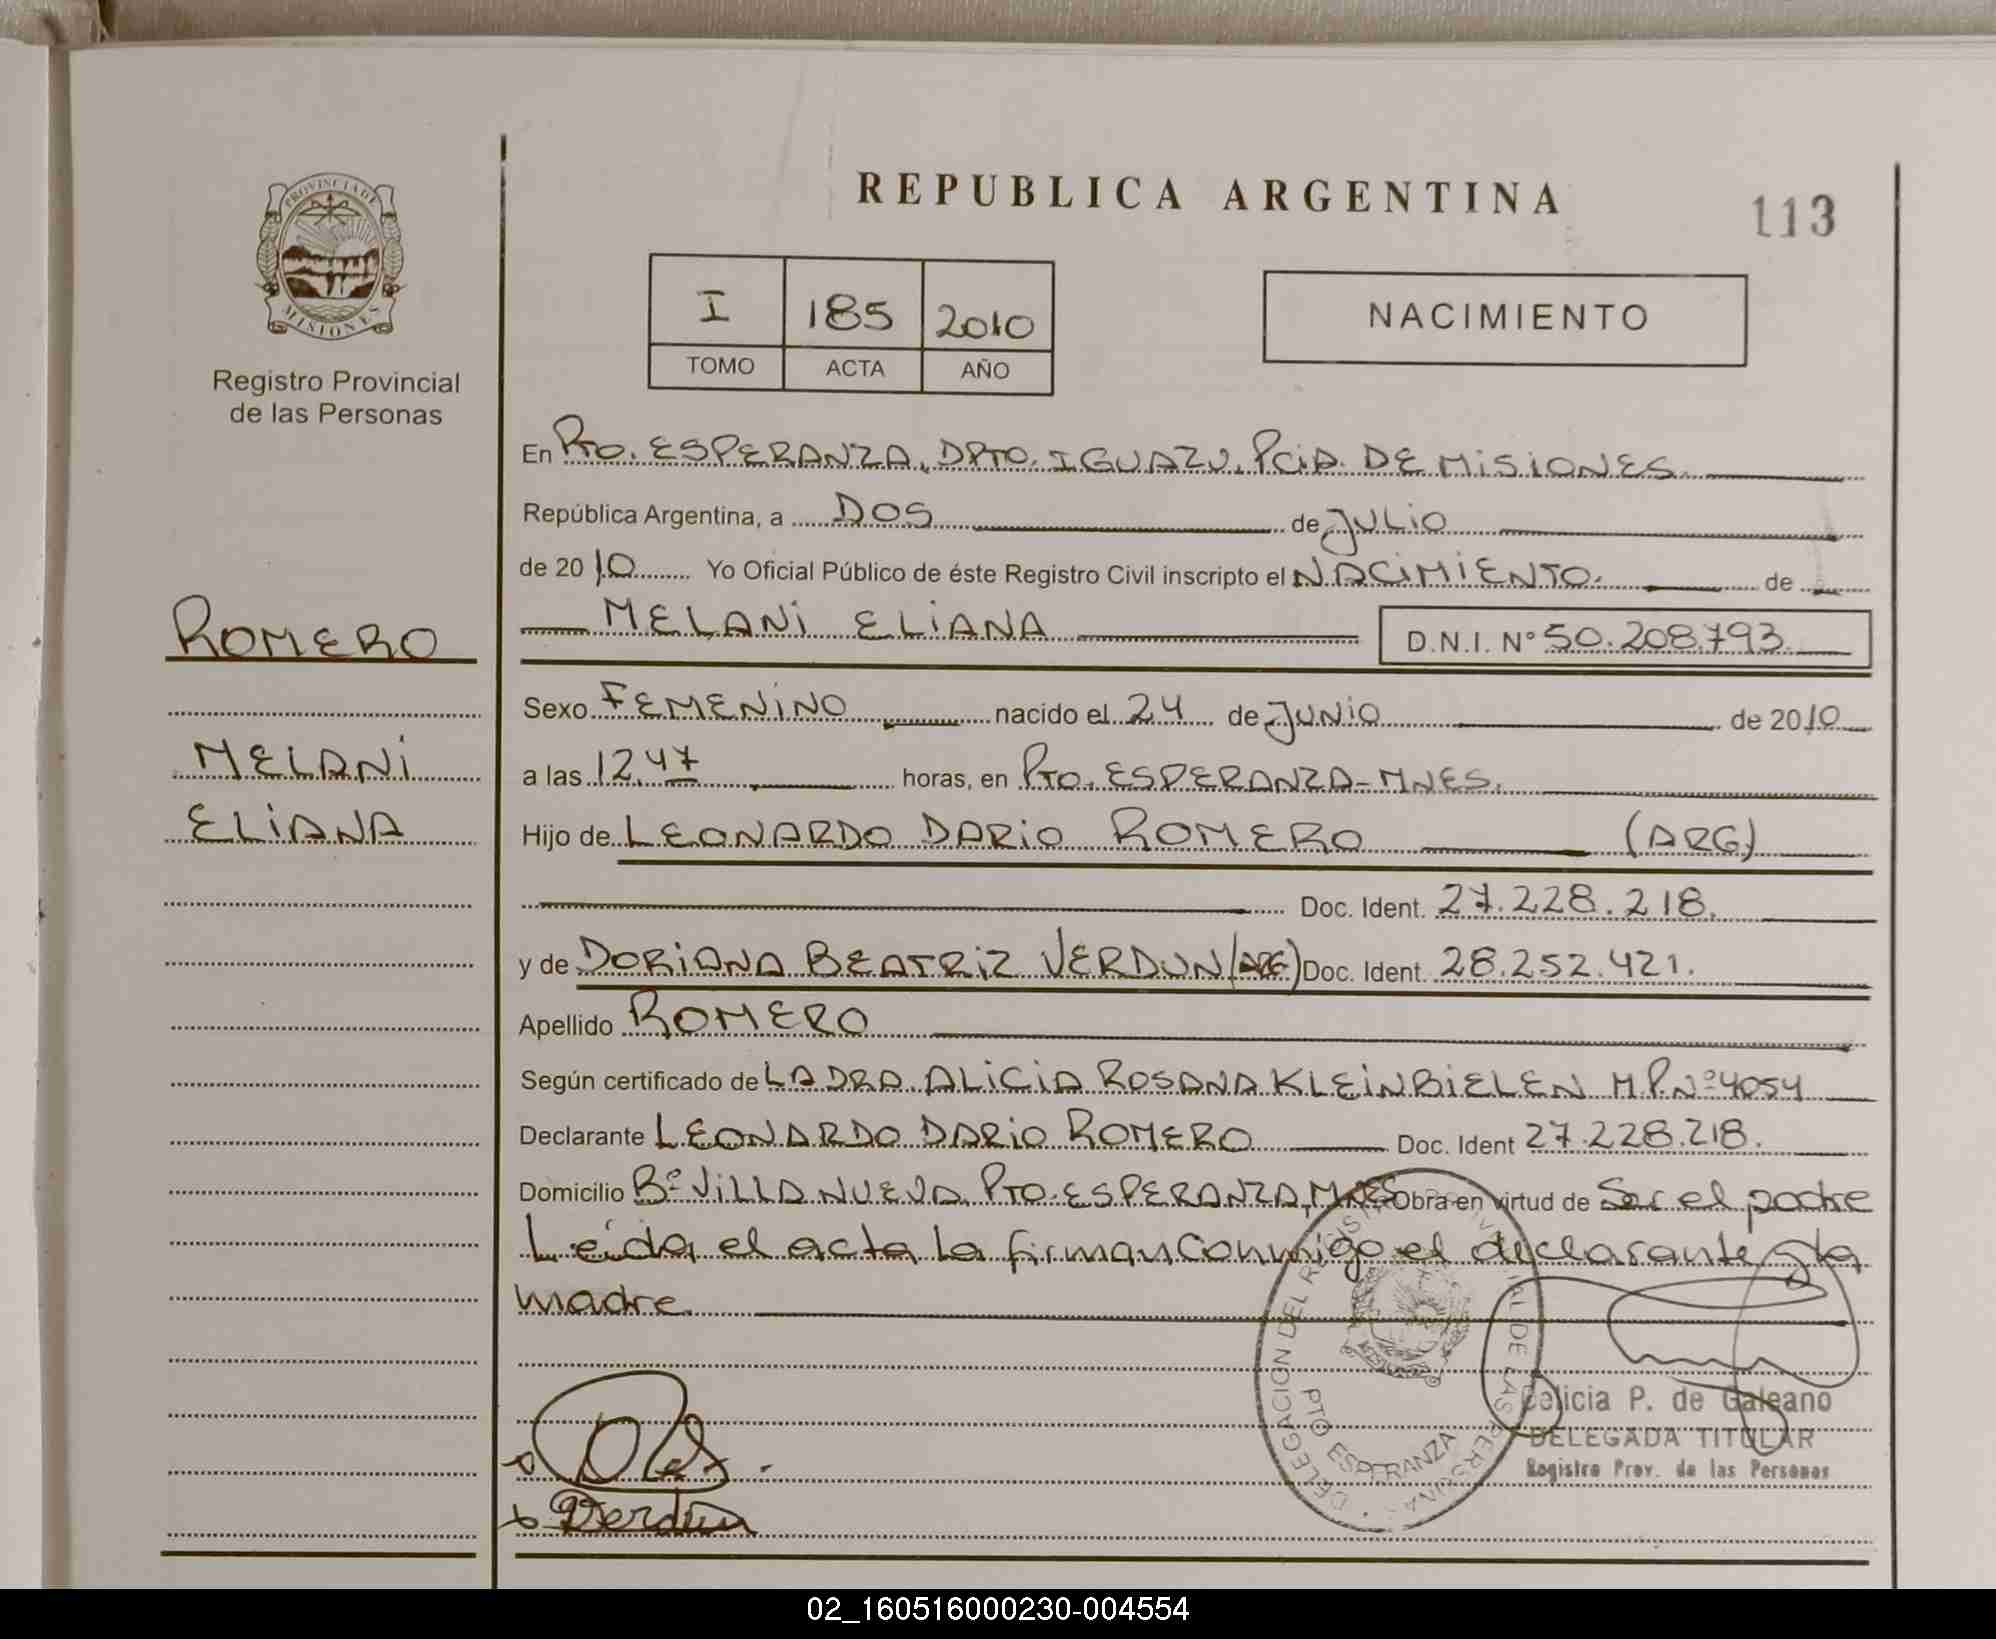 REPUBLICA ARGENTINA
113
PROVINCIA DE
MISIONES
Registro Provincial
de las Personas
I 185 2010
TOMO ACTA AÑO
NACIMIENTO
En Pto. ESPERANZA, DPTO. IGUAZU, PCIA. DE MISIONES.
República Argentina, a DOS de JULIO
de 2010 Yo Oficial Público de éste Registro Civil inscripto el NACIMIENTO. de
MELANI ELIANA D.N.I. N° 50.208.793
ROMERO
MELANI
ELIANA
Sexo FEMENINO nacido el 24 de JUNIO de 2010
a las 12.47 horas, en Pto. ESPERANZA-MNES.
Hijo de LEONARDO DARIO ROMERO (ARG)
Doc. Ident. 27.228.218.
y de DORIANA BEATRIZ VERDUN (ARG) Doc. Ident. 28.252.421.
Apellido ROMERO
Según certificado de LA DRA. ALICIA ROSANA KLEINBIELEN M.P.Nº4054
Declarante LEONARDO DARIO ROMERO Doc. Ident 27.228.218.
Domicilio Bº VILLA NUEVA, PTO. ESPERANZA, MNES Obra en virtud de Ser el padre
Leida el acta la firman conmigo el declarante y la
madre.
DELEGACION DEL REGISTRO PROVINCIAL DE LAS PERSONAS
PTO ESPERANZA
Felicia P. de Galeano
DELEGADA TITULAR
Registro Prov. de las Personas
Verdún
02_160516000230-004554